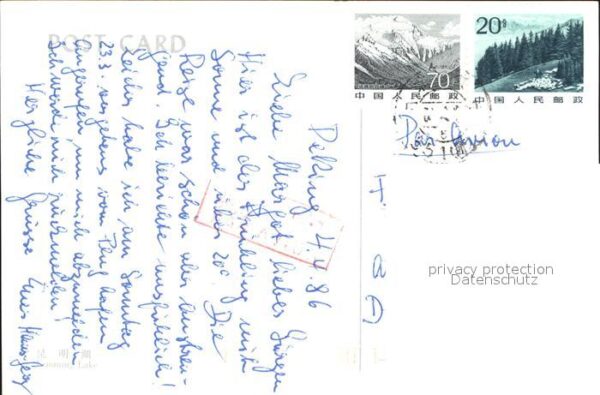 POST CARD
70
中国人民邮政
20分
中国人民邮政
Par Avion
Peking 4.4.86
Liebe Margot, lieber Jürgen
Hier ist der Frühling mit
Sonne und über 20°. Die
Reise war schön aber anstren-
gend. Ich berichte ausführlich!
Leider habe ich am Sonntag
23.3. vergebens vom Flughafen
angerufen, um mich abzumelden.
Herzliche Grüsse Euer
privacy protection
Datenschutz
昆明湖
Kunming Lake